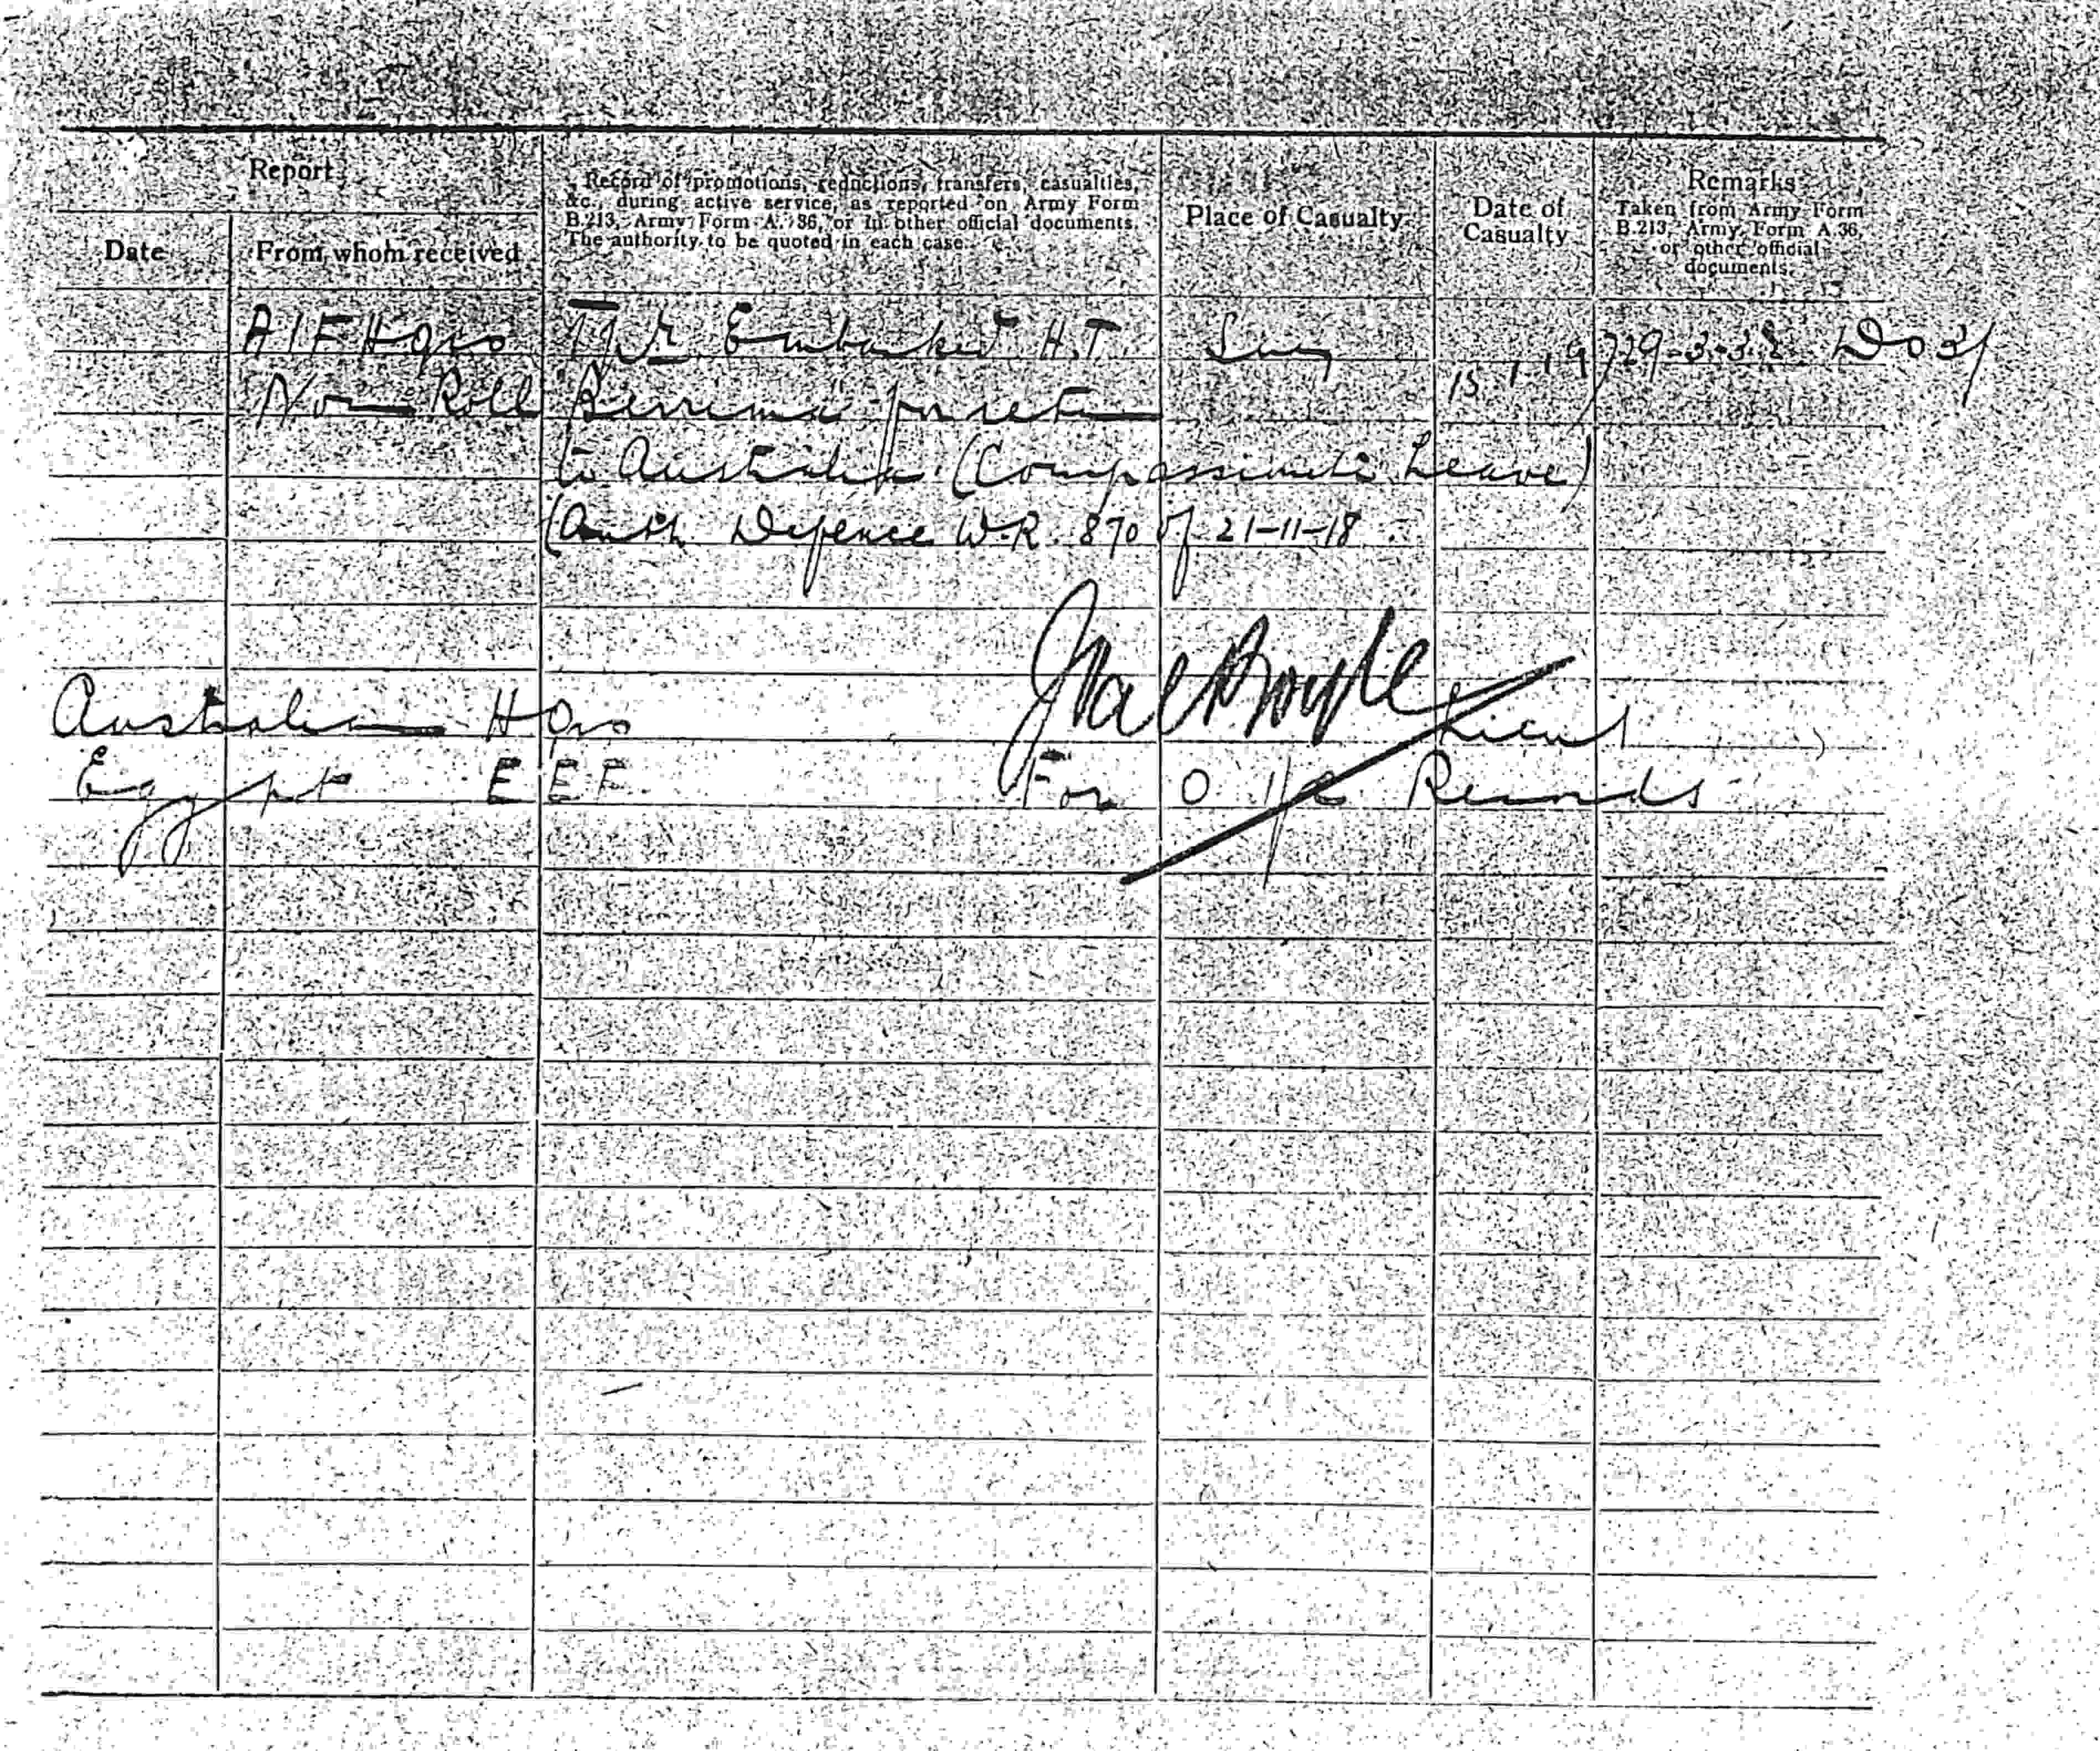 Report
Record of promotions, reductions, transfers, casualties,
&c., during active service, as reported on Army Form
B.213, Army Form A. 36, or in other official documents.
The authority to be quoted in each case.
Place of Casualty
Date of
Casualty
Remarks
Taken from Army Form
B.213, Army Form A.36,
or other official
documents.
Date
From whom received
AIF Hqrs Embarked H.T. Suez 15.1.19 D03/
Nom Roll "Berrima" for return
to Australia (Compassionate Leave)
(Auth Defence W.R. 870 of 21-11-18
Australian Hqrs Lieut
Egypt E E F. For O i/c Records